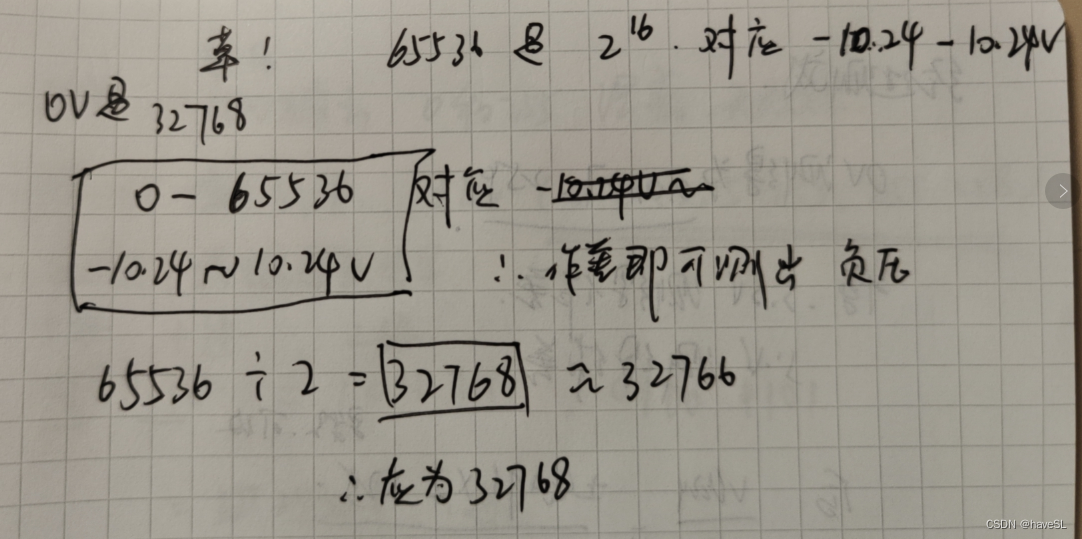 草！ 65536 是 2¹⁶. 对应 -10.24 - 10.24V
0V是 32768
0 - 65536 对应 -10.24V~
-10.24 ~ 10.24V ∴ 作差即可测出 负压
65536 ÷ 2 = 32768 ≈ 32766
∴ 应为 32768
CSDN @haveSL